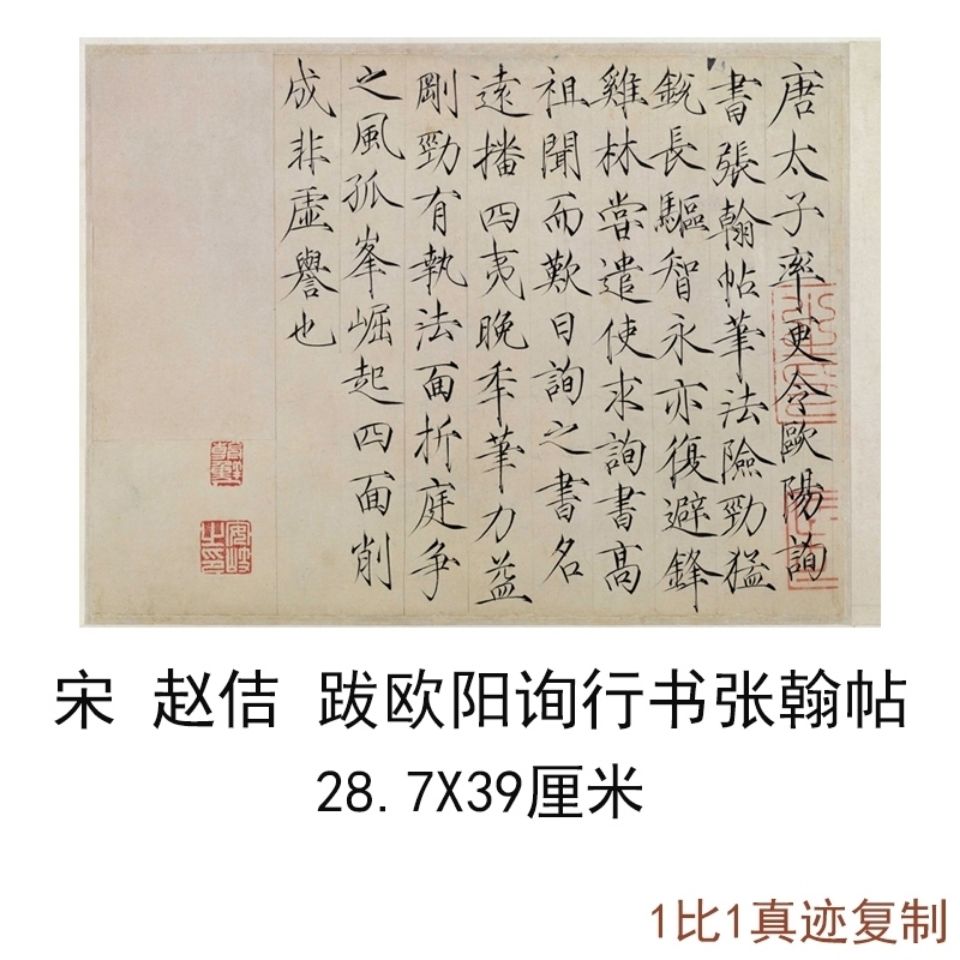 唐太子率更令歐陽詢
書張翰帖筆法險勁猛
銳長驅智永亦復避鋒
雞林嘗遣使求詢書高
祖聞而歎曰詢之書名
遠播四夷晚年筆力益
剛勁有執法面折庭爭
之風孤峯崛起四面削
成非虛譽也
安岐
之印
宋 赵佶 跋欧阳询行书张翰帖
28.7X39厘米
1比1真迹复制